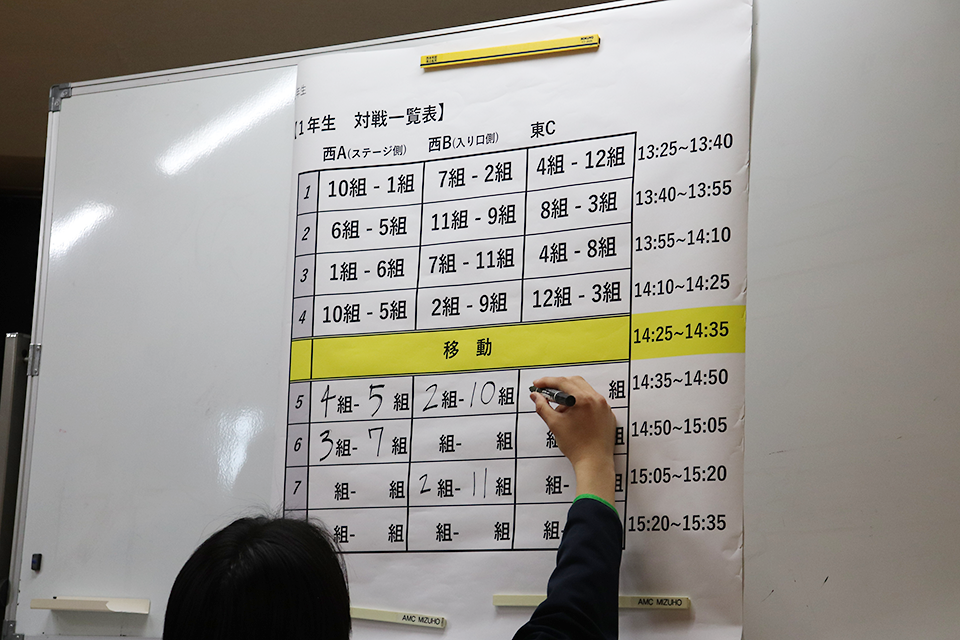 年生
【1年生 対戦一覧表】
西A(ステージ側) 西B(入り口側) 東C
1 10組 - 1組 7組 - 2組 4組 - 12組 13:25~13:40
2 6組 - 5組 11組 - 9組 8組 - 3組 13:40~13:55
3 1組 - 6組 7組 - 11組 4組 - 8組 13:55~14:10
4 10組 - 5組 2組 - 9組 12組 - 3組 14:10~14:25
移 動 14:25~14:35
5 4組- 5組 2組- 10組 組 14:35~14:50
6 3組- 7組 組- 組 組 組 14:50~15:05
7 組- 組 2組- 11組 組- 組 15:05~15:20
組- 組 組- 組 組 15:20~15:35
AMC MIZUHO
AMC MIZUHO